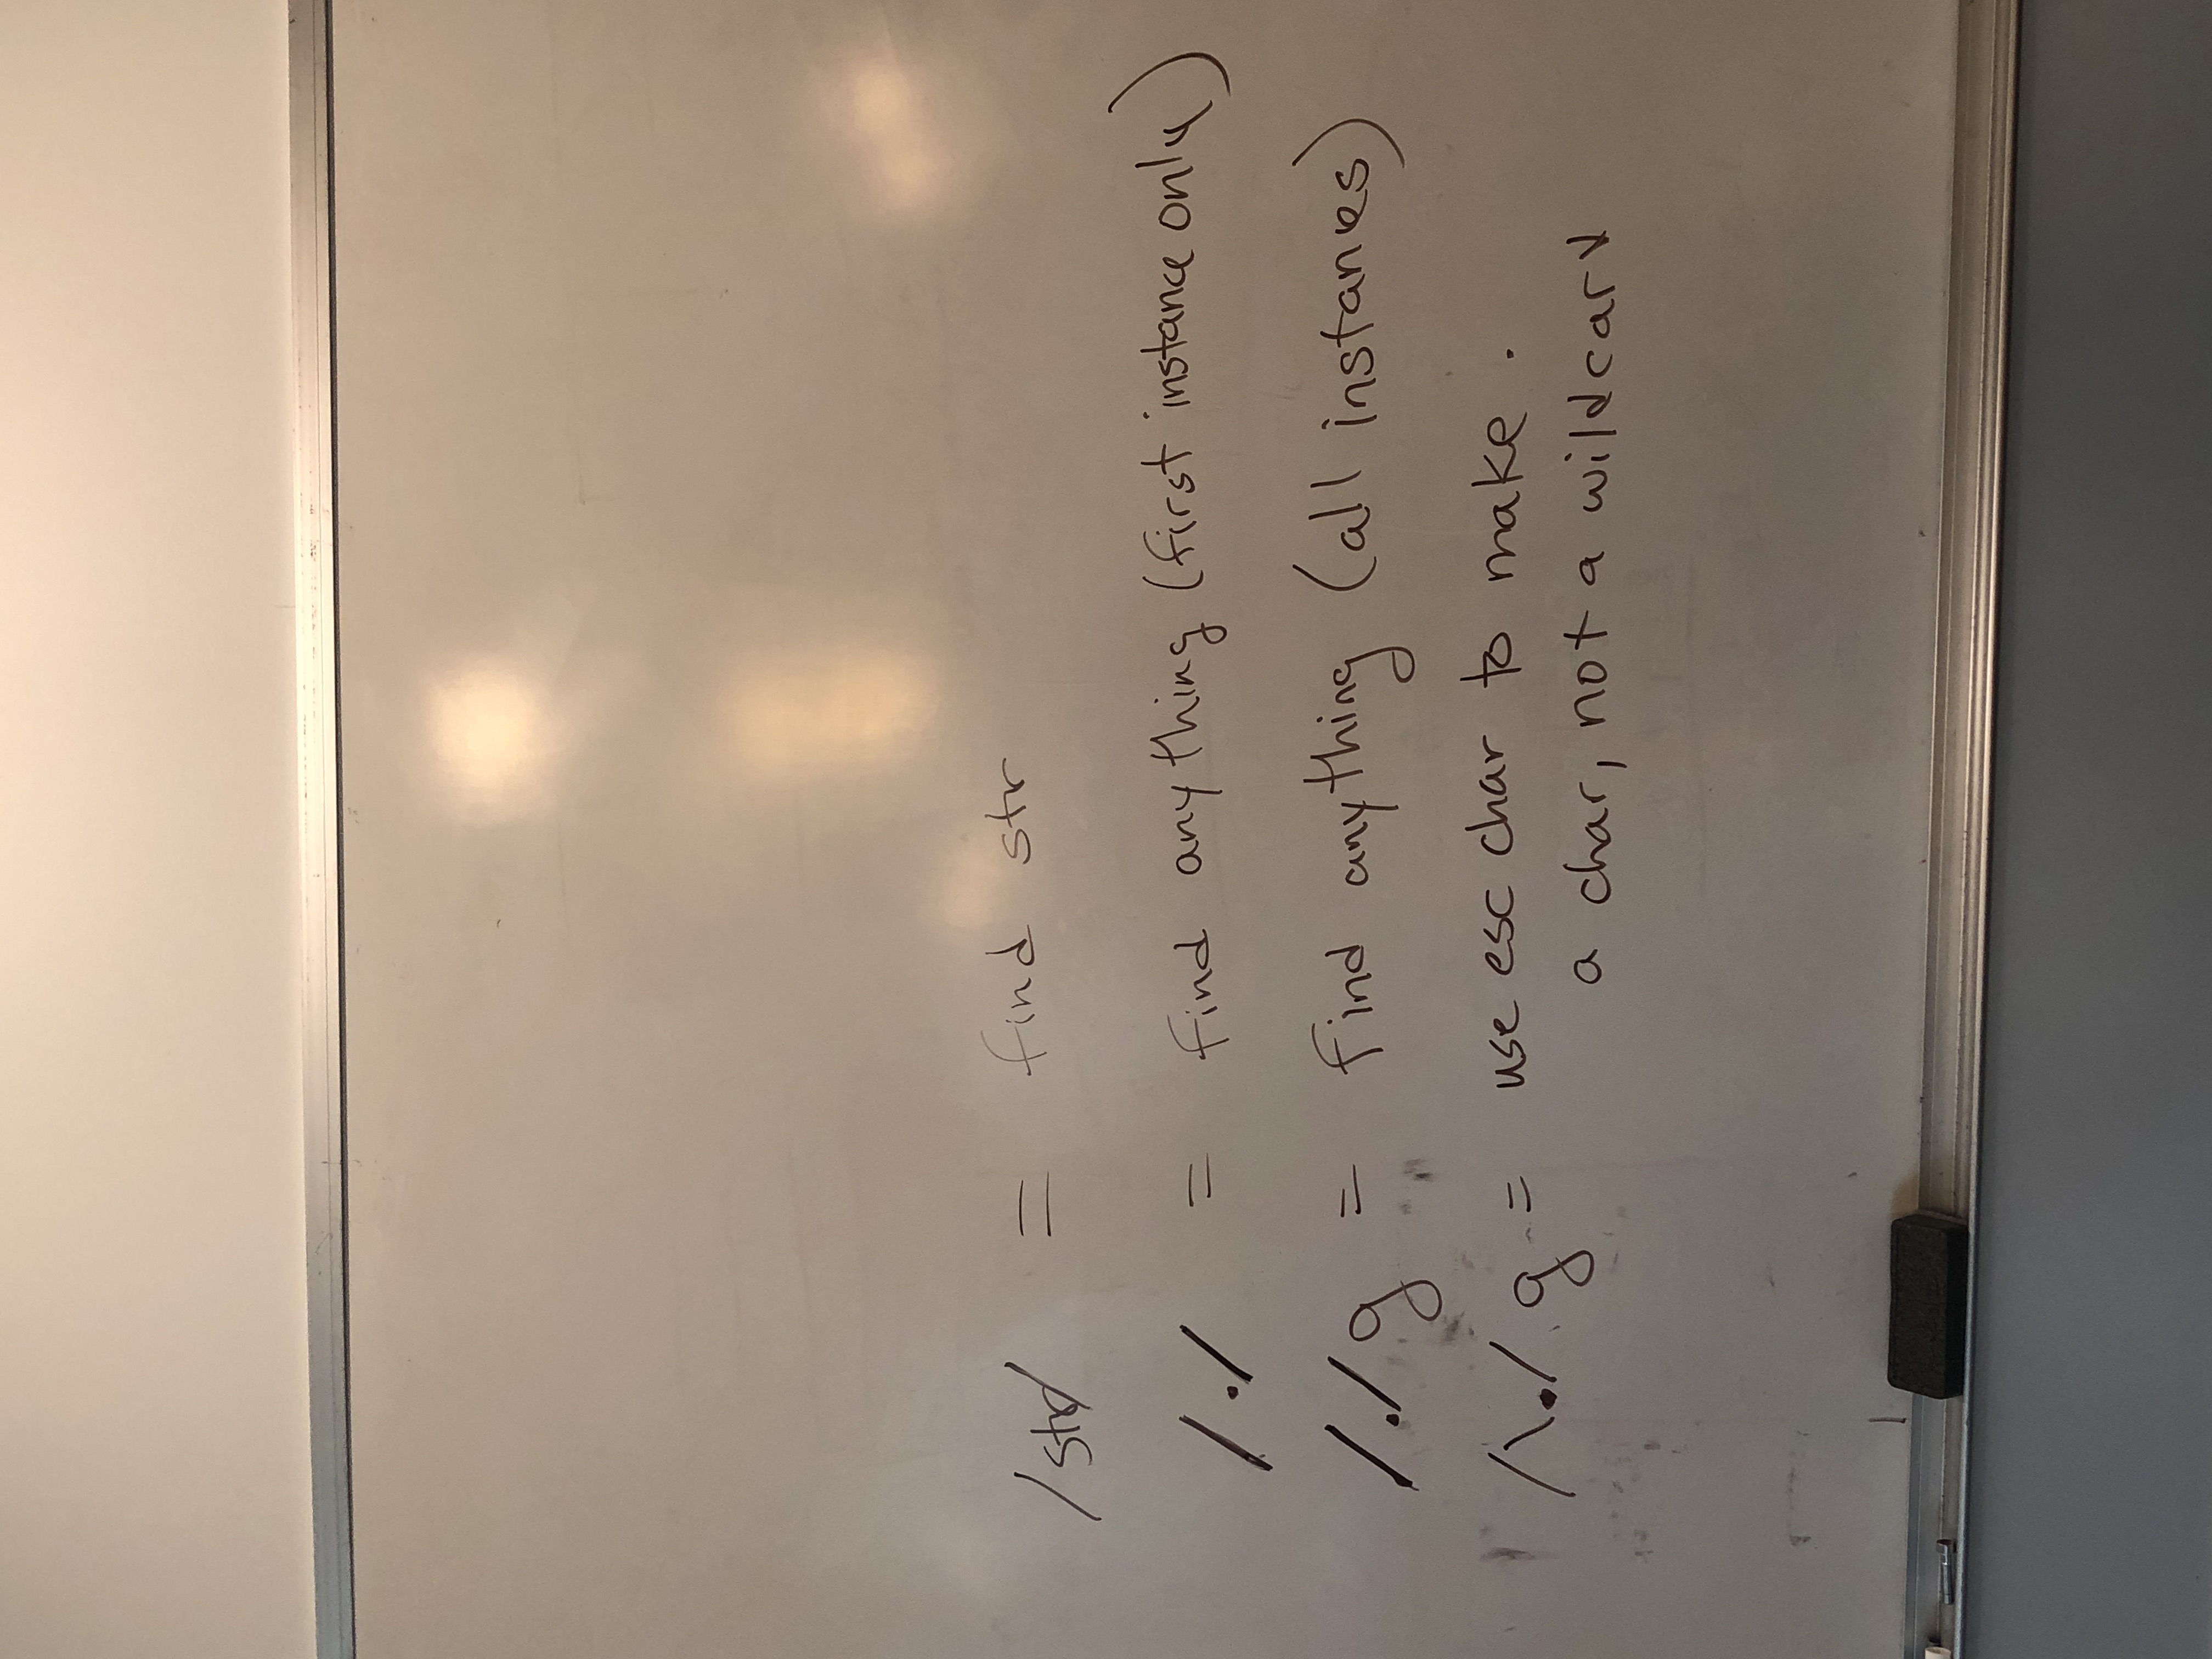 /str/ = find str
/./ = find anything (first instance only)
/./g = find anything (all instances)
/\./g = use esc char to make .
a char, not a wildcard